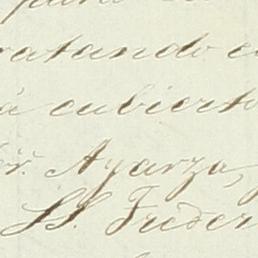 ratando e
á cubierto
or. Ayarza,
SS. Freder